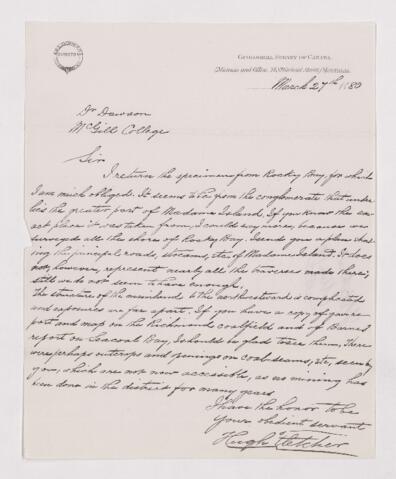 GEOLOGICAL SURVEY OF CANADA.
Museum and Office, 76 St Gabriel Street, Montreal.
March 27th 1880
Dr Dawson
McGill College
Sir
I return the specimens from Rocky Bay, for which
I am much obliged. It seems to be from the conglomerate that under-
lies the greater part of Madame Island. If you know the ex-
act place it was taken from, I could say more, because we
surveyed all the shore of Rocky Bay. I send you a plan show-
ing the principal roads, streams, etc. of Madame Island. It does
not, however, represent nearly all the traverses made there;
still we do not seem to have enough.
The structure of the mainland to the northwestward is complicated
and exposures are far apart. If you have a copy of your re-
port and map on the Richmond coalfield and of Barnes'
report on Seacoal Bay, I should be glad to see them. There
were perhaps outcrops and openings on coal seams, etc, seen by
you, which are not now accessible, as no mining has
been done in the district for many years.
I have the honor to be
Your obedient servant
Hugh Fletcher